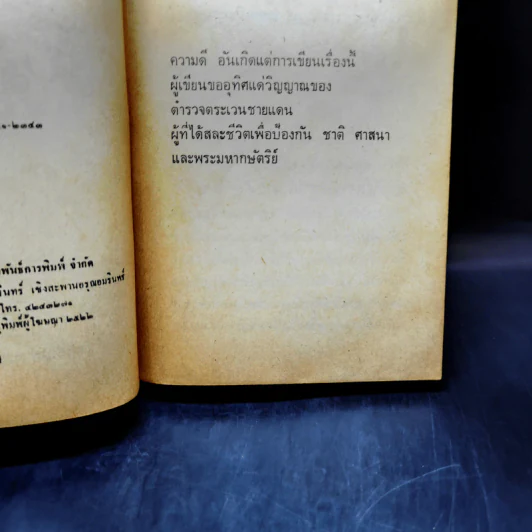 ๑-๒๓๔๓
พันธ์การพิมพ์ จำกัด
ินทร์ เชิงสะพานอรุณอมรินทร์
โทร. ๔๒๔๓๒๗๑
พิมพ์ผู้โฆษณา ๒๕๒๒
ความดี อันเกิดแต่การเขียนเรื่องนี้
ผู้เขียนขออุทิศแด่วิญญาณของ
ตำรวจตระเวนชายแดน
ผู้ที่ได้สละชีวิตเพื่อป้องกัน ชาติ ศาสนา
และพระมหากษัตริย์